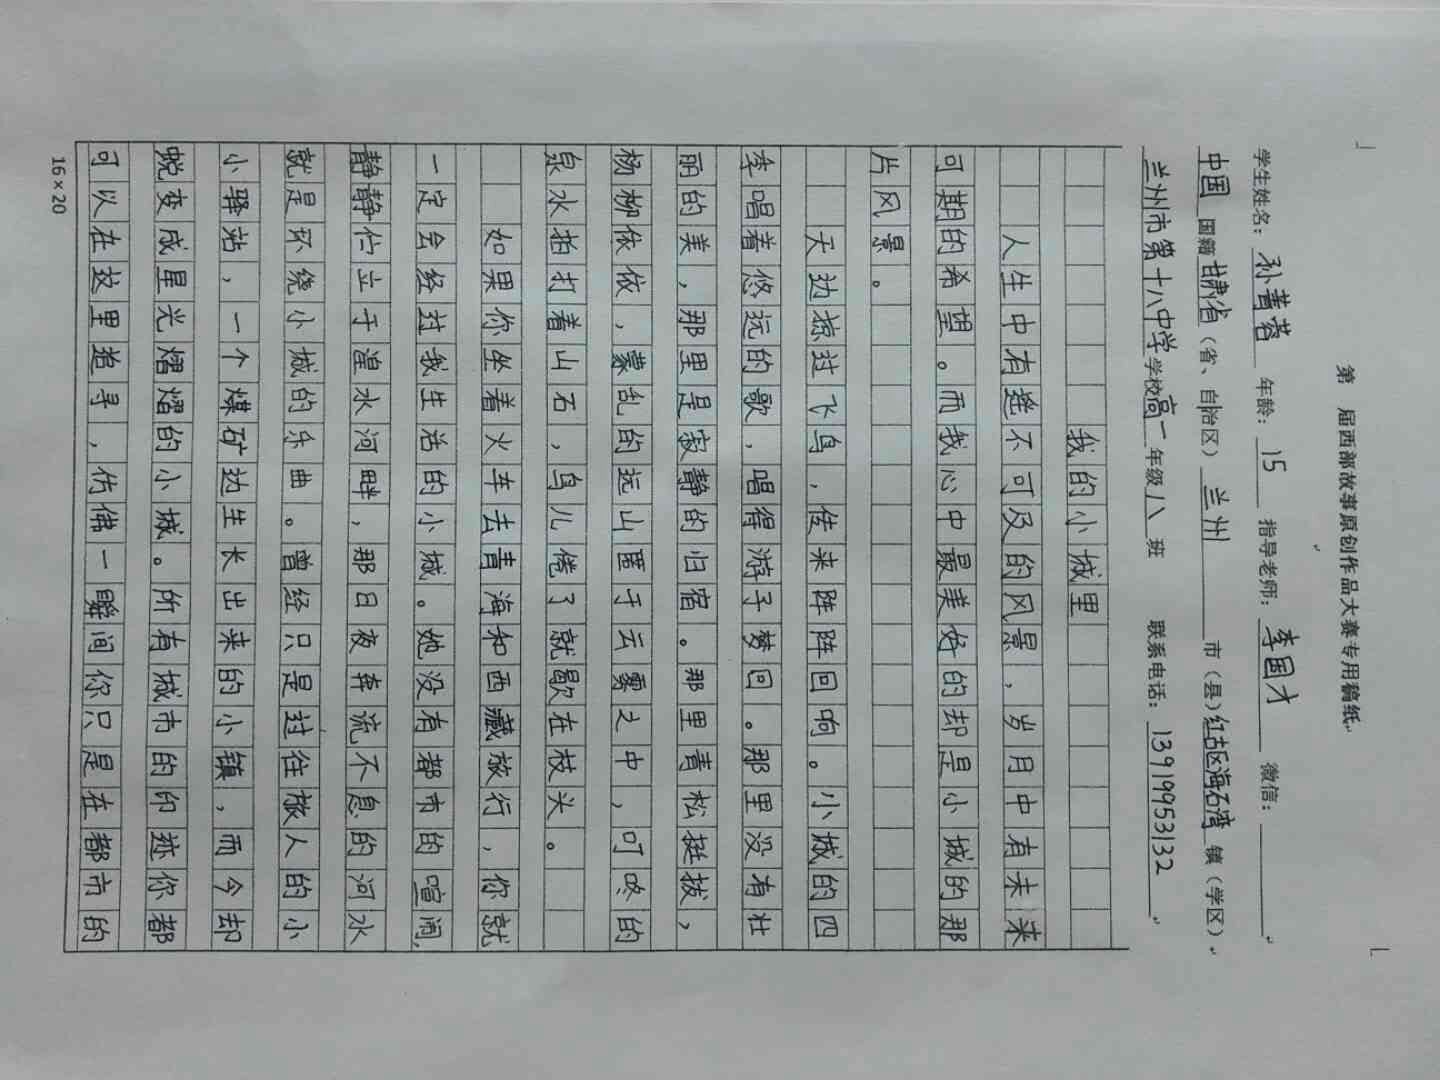 第 届西部故事原创作品大赛专用稿纸
学生姓名：孙菁蓉 年龄：15 指导老师：李国才 微信：
中国 国籍 甘肃省（省、自治区）兰州 市（县）红古区海石湾 镇（学区）
兰州市第十八中学 学校 高一 年级 八 班 联系电话：13919953132
我的小城里
人生中有遥不可及的风景，岁月中有未来
可期的希望。而我心中最美好的却是小城的那
片风景。
天边掠过飞鸟，传来阵阵回响。小城的四
季唱着悠远的歌，唱得游子梦回。那里没有壮
丽的美，那里是寂静的归宿。那里青松挺拔，
杨柳依依，蒙乱的远山匿于云雾之中，叮咚的
泉水拍打着山石，鸟儿倦了就歇在枝头。
如果你坐着火车去青海和西藏旅行，你就
一定会经过我生活的小城。她没有都市的喧闹，
静静伫立于湟水河畔，那日夜奔流不息的河水
就是环绕小城的乐曲。曾经只是过往旅人的小
小驿站，一个煤矿边生长出来的小镇，而今却
蜕变成星光熠熠的小城。所有城市的印迹你都
可以在这里追寻，仿佛一瞬间你只是在都市的
16×20